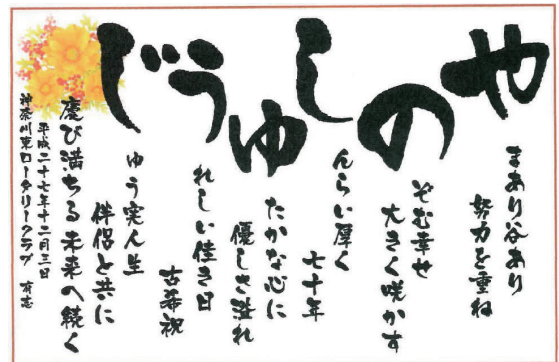 やのしゆうじ
まあり谷あり
努力を重ね
ぞむ幸せ
大きく咲かす
んらい厚く
七十年
たかな心に
優しさ溢れ
れしい佳き日
古希祝
ゆう実人生
伴侶と共に
慶び満ちる未来へ続く
平成二十七年十二月三日
神奈川東ロータリークラブ 有志